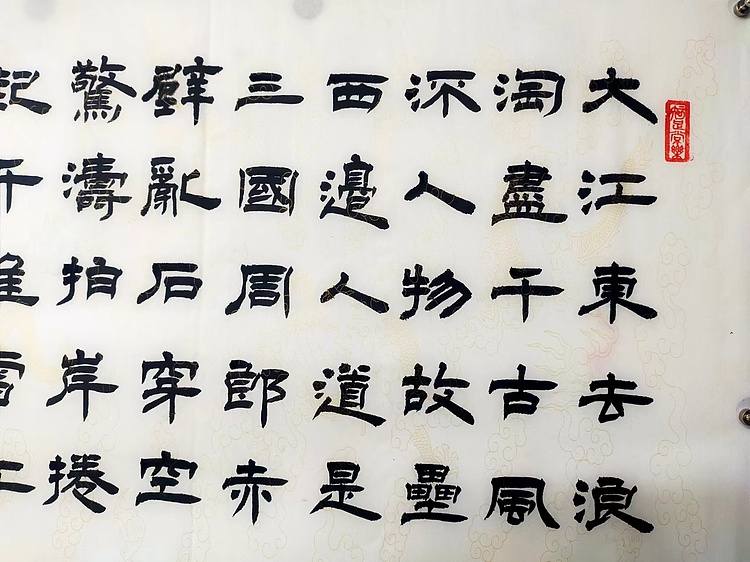 大江東去浪
淘盡千古風
㳅人物故壘
西邊人道是
三國周郎赤
壁亂石穿空
驚濤拍岸捲
起千堆雪江